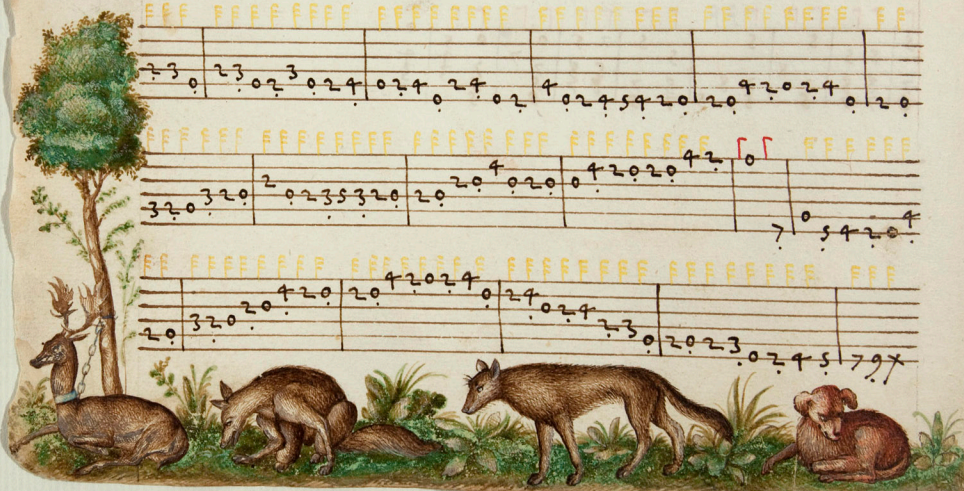 2 3 0 2 3 0 2 3 0 2 4 0 2 4 0 2 4 0 2 4 0 2 4 5 4 2 0 2 0 4 2 0 2 4 0 2 0
3 2 0 3 2 0 2 0 2 3 5 3 2 0 2 0 2 0 4 0 2 0 0 4 2 0 2 0 4 2 0 7 0 5 4 2 0 4
2 0 3 2 0 2 0 4 2 0 2 0 4 2 0 2 4 0 2 4 0 2 4 2 3 0 2 0 2 3 0 2 4 5 7 9 x